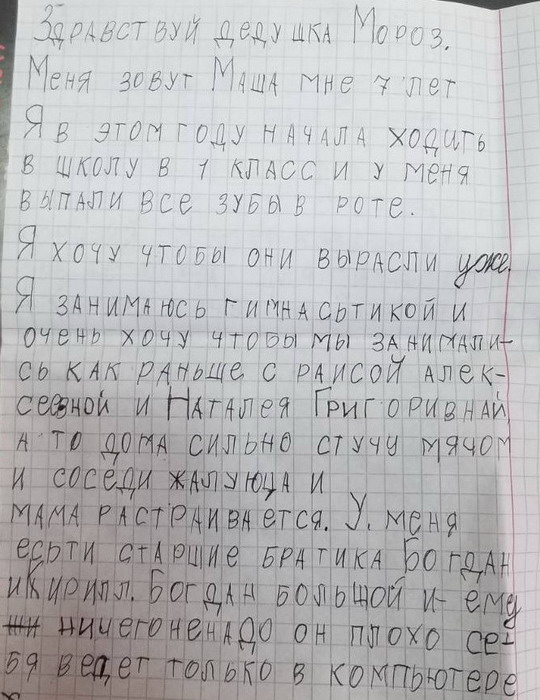 Здравствуй дедушка Мороз.
Меня зовут Маша мне 7 лет
Я в этом году начала ходить
в школу в 1 класс и у меня
выпали все зубы в роте.
Я хочу чтобы они вырасли уже.
Я занимаюсь гимнасьтикой и
очень хочу чтобы мы занимали-
сь как раньше с Раисой Алек-
сеевной и Наталея Григоривнай
а то дома сильно стучу мячом
и соседи жалуюца и
мама растраивается. У. меня
есьти старшие братика Богдан
и Кирилл. Богдан большой и ему
ничего ненадо он плохо се-
бя ведет только в компьютере